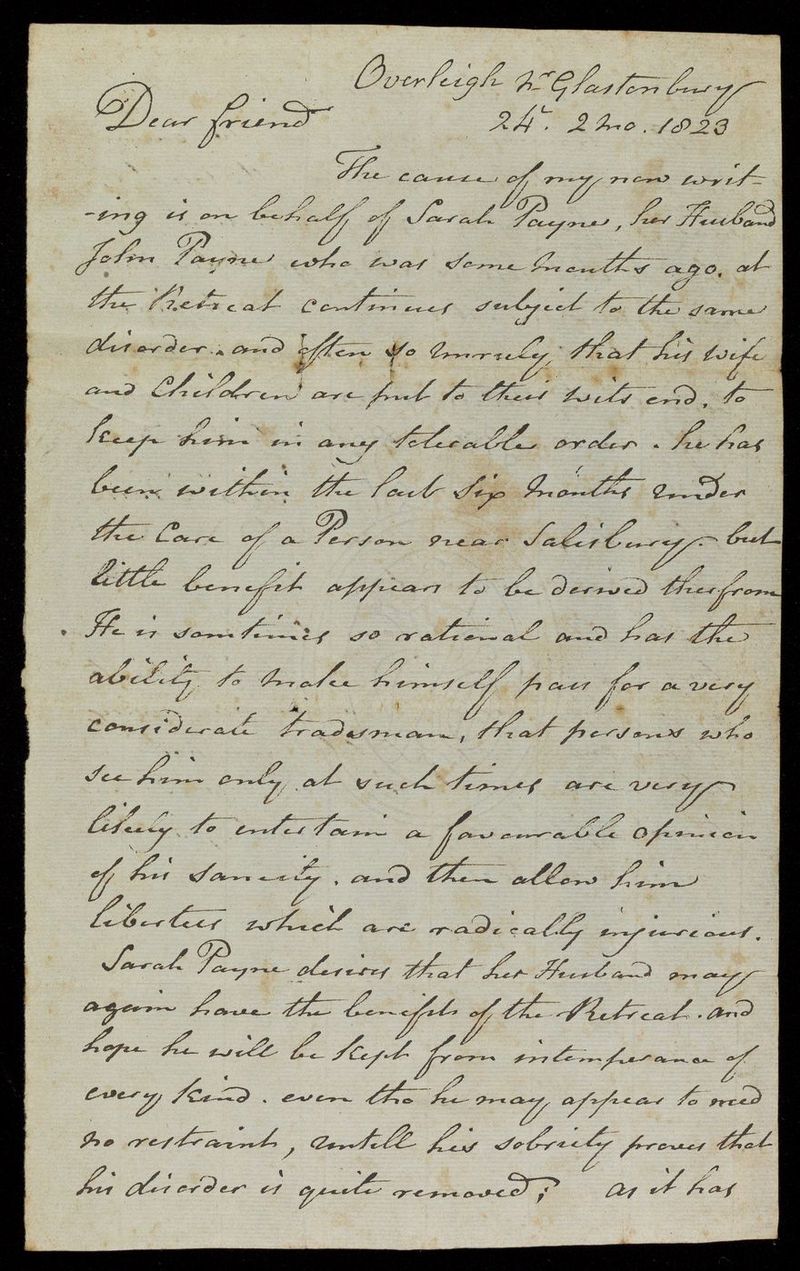 Overleigh Nr Glastonbury
Dear friend 24th. 2 mo. 1823
The cause of my now writ-
-ing is on behalf of Sarah Payne, her Husband
John Payne who was some Months ago. at
the Retreat continues subject to the same
disorder. and often so unruly that his wife
and Children are put to their wits end, to
keep him in any tolerable order. he has
been within the last six Months under
the Care of a Person near Salisbury. but
little benefit appears to be derived therfrom
He is somtimes so rational and has the
ability to make himself pass for a very
considerate tradesman, that persons who
see him only at such times are very
likely to entertain a favourable opinion
of his sanity. and then allow him
liberties which are radically injurious.
Sarah Payne desires that her Husband may
again have the benefit of the Retreat. and
hope he will be kept from intemperance of
every kind. even tho he may appear to need
no restraint, untill his sobriety proves that
his disorder is quite removed; as it has